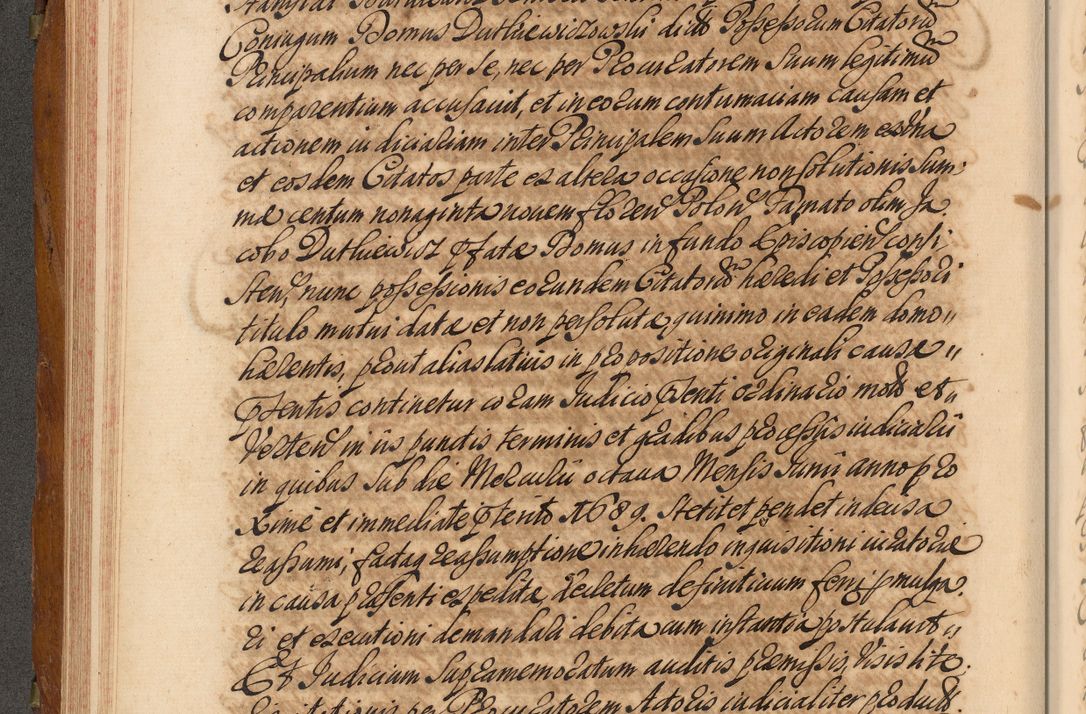 Coniugum Domus Duthiewiczowski dict Possessorum Citatorum
Principalium nec per se, nec per Procuratorem Suum legitimum
comparentium accusavit, et in eorum contumaciam causam et
actionem iudiciariam inter Principalem Suum Actorem ex una
et eosdem Citatos parte ex altera occasione non solutionis Sum:
mæ centum nonaginta novem floren Polon Famato olim Ja.
cobo Duthiewicz pfatæ Domus in fundo Episcopien consi
sten, nunc possessionis eorundem Citatorum hæredi et Possessori
titulo mutui datæ et non persolutæ, quinimo in eadem domo„
hærentis, prout alias latius in propositione originali causæ „
pntis continetur coram Judicio pnti ordinario mod et„
Verten in iis punctis terminis et gradibus processus iudicialii
in quibus sub die Mercurii octava Mensis Junii anno pro
ximè et immediatè pterito 1689. Stetit et pendet indecisa
reassumi; factaq reassumptione inhærendo inquisitioni iuratoriæ
in causa præsenti expeditæ decretum definitivum ferri pmulga.
ri et executioni demandari debita cum instantia postulavit„
Et Judicium Supramemoratum auditis præmissis, visis lite.
per Procuratorem Actoris iudicialiter product.